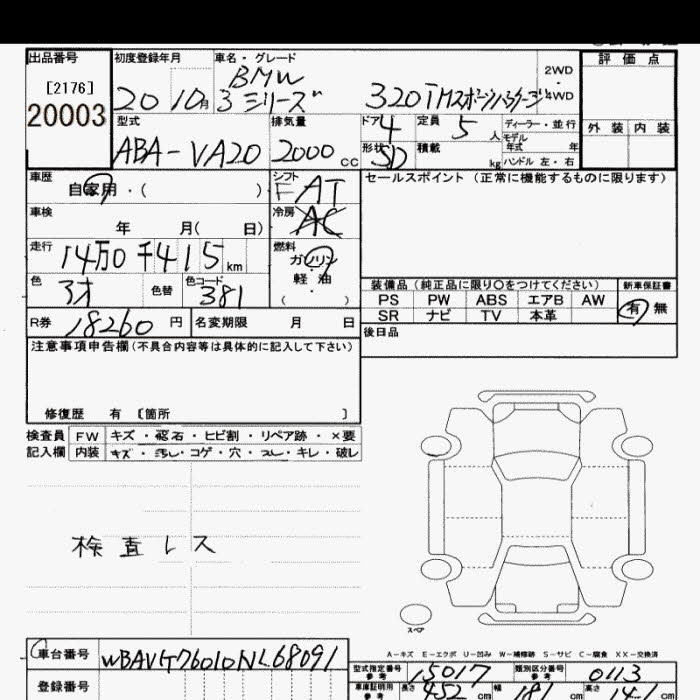 出品番号 初度登録年月 車名・グレード 評価点
[2176] BMW 2WD
20003 20 10月 3シリーズ 320i Mスポーツパッケージ 4WD
型式 排気量 ドア 4 定員 5 人 ディーラー・並行 外装 内装
モデル年式 年
ABA-VA20 2000 cc 形状 SD 積載 kg ハンドル 左・右
車歴 自家用・( ) シフト FAT セールスポイント (正常に機能するものに限ります)
車検 年 月( 日) 冷房 AC
走行 14万0千415km 燃料 ガソリン・軽油 ( )
色 色替 色コード 381 装備品 (純正品に限り○をつけてください) 新車保証書
PS PW ABS エアB AW 有 無
SR ナビ TV 本革
R券 18260 円 名変期限 月 日 後日品
注意事項申告欄 (不具合内容等は具体的に記入して下さい)
修復歴 有 〔箇所 〕
検査員 FW キズ・飛石・ヒビ割・リペア跡・×要
記入欄 内装 キズ・汚レ・コゲ・穴・スレ・キレ・破レ
検査レス
スペア
A-キズ E-エクボ U-凹み W-補修跡 S-サビ C-腐食 XX-交換済
車台番号 WBAVG76010NL68091 型式指定番号 参考 15017 類別区分番号 参考 0113
登録番号 車庫証明用 参考 長さ 452 cm 幅 181 cm 高さ 141 cm